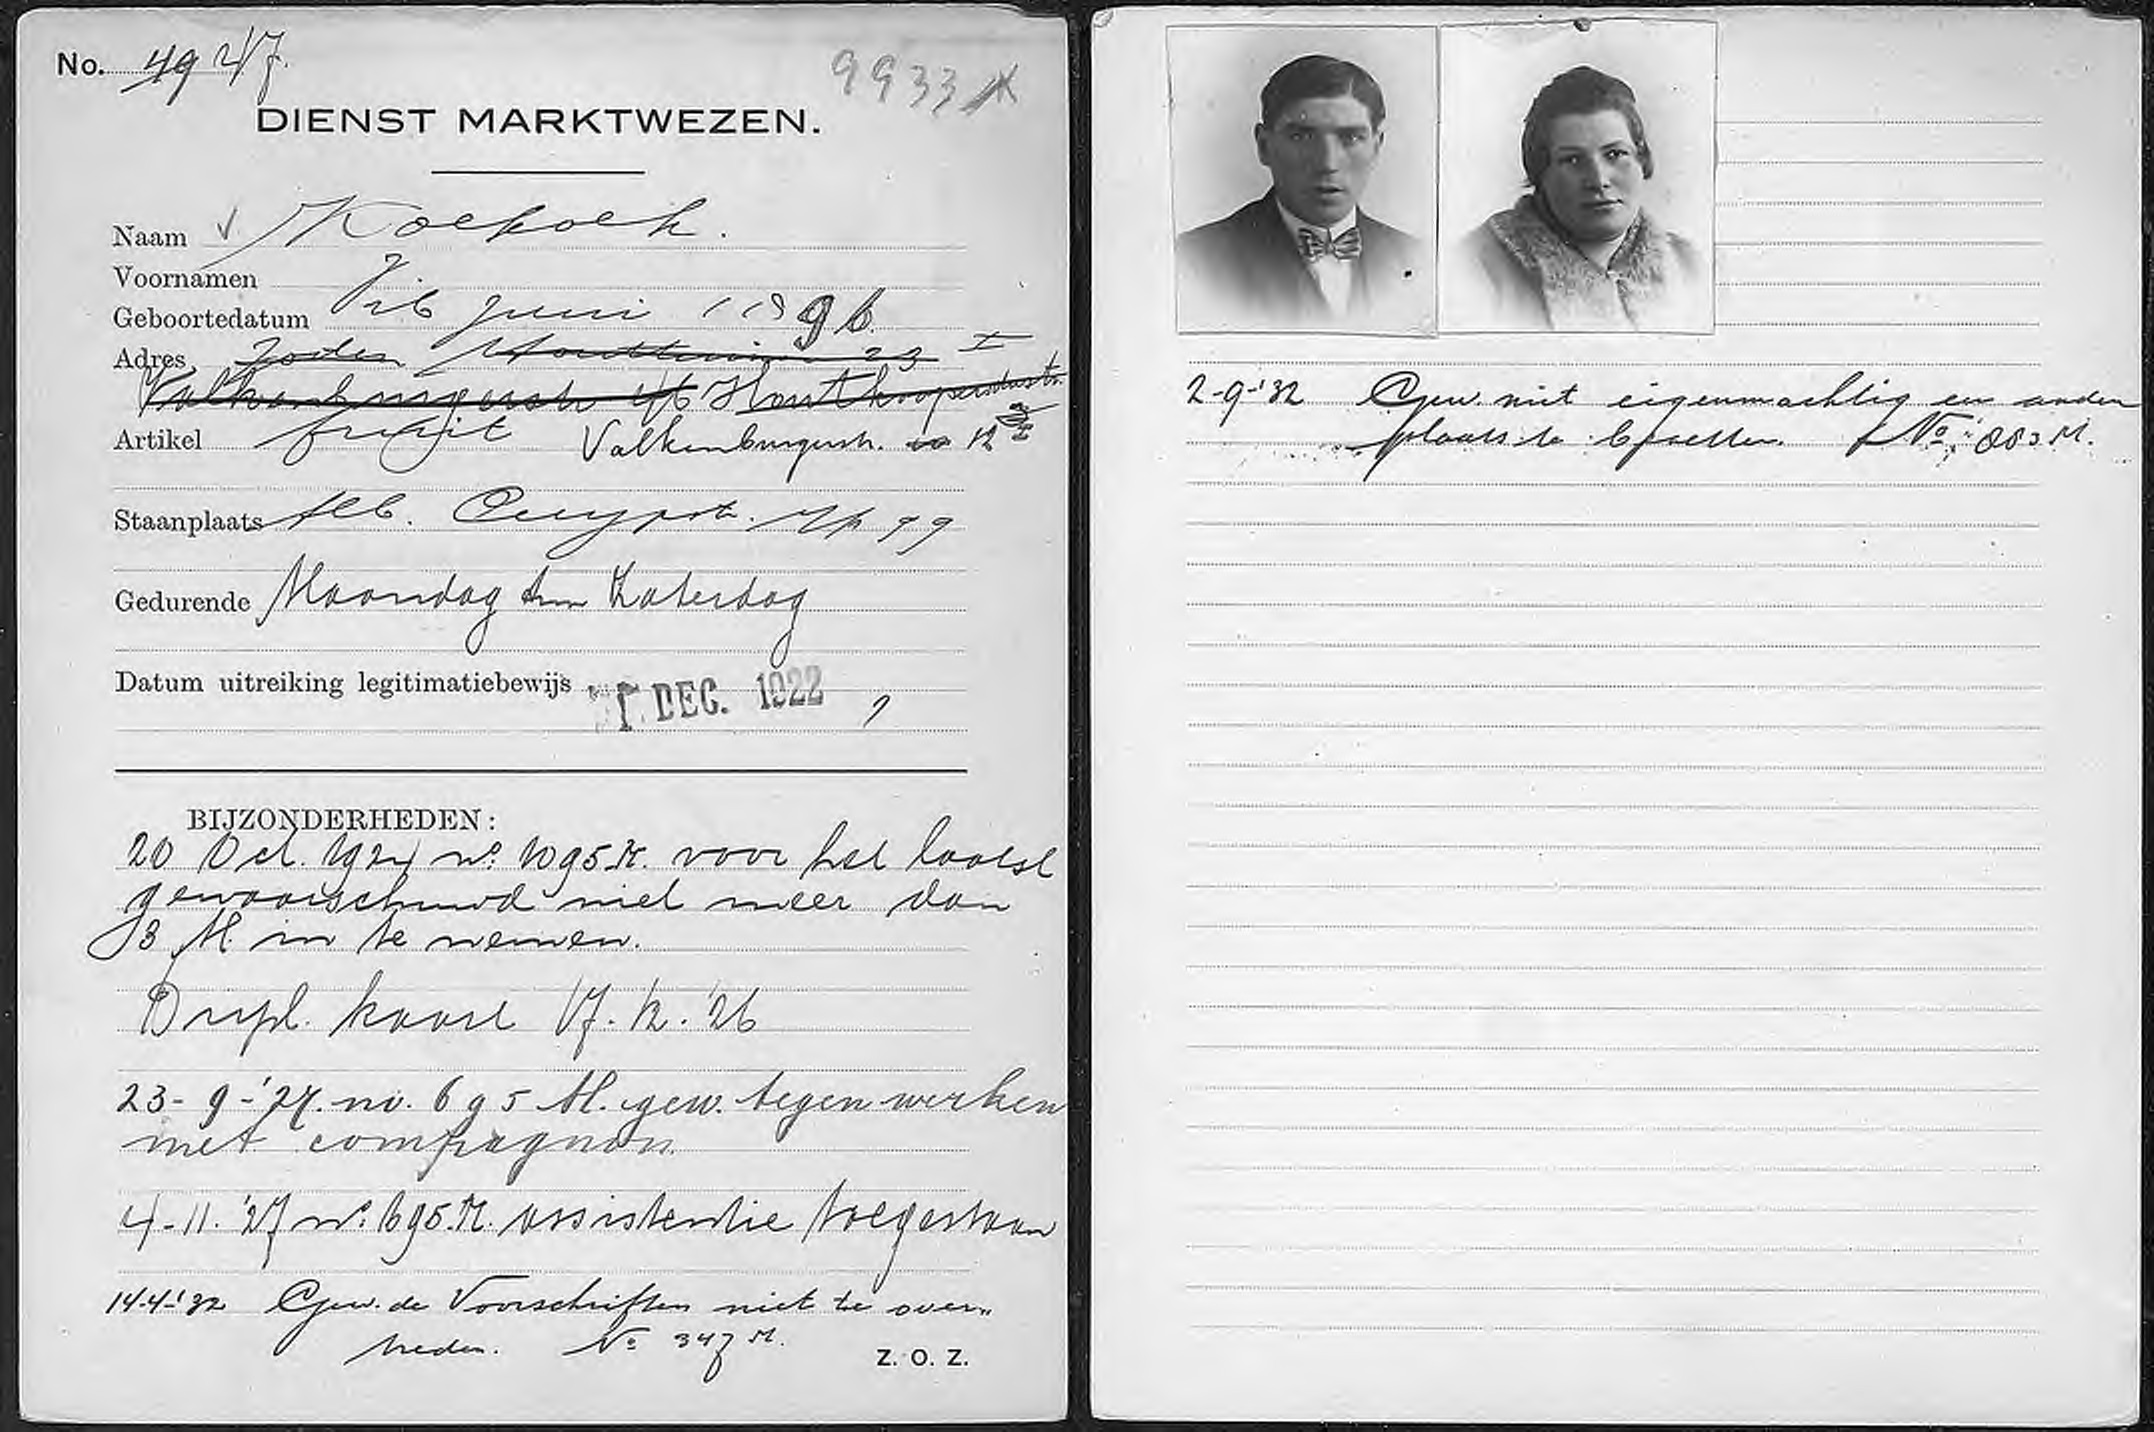 No. 49 247.
9933
DIENST MARKTWEZEN.
Naam Koekoek.
Voornamen
Geboortedatum Juni 1896
Adres Joden Houttuinen 23 I
Valkenburgerstr 46 Houtkoopersdwstr.
Artikel fruit Valkenburgerstr. 12
Staanplaats Alb. Cuypstr. 99
Gedurende Maandag t/m Zaterdag
Datum uitreiking legitimatiebewijs DEC. 1922
BIJZONDERHEDEN:
20 Oct. 1924 no. 1095 M. voor het laatst
gewaarschuwd niet meer dan
3 M in te nemen.
Dupl. kaart 17.12.'26
23-9-'27. no. 695 M. gew. tegen werken
met compagnon.
4-11.'27 no. 695 M. assistentie toegestaan
14-4-'32 Gew. de Voorschriften niet te over„
treden. No 347 M.
Z. O. Z.
2-9-'32 Gew. niet eigenmachtig een ander
plaats te bezetten. No 883 M.